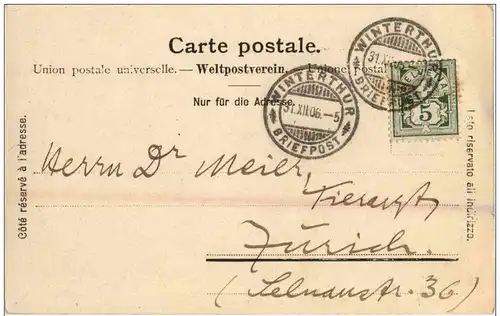 Carte postale.
Union postale universelle. — Weltpostverein. — Unione postal
Nur für die Adresse.
WINTERTHUR
31.XII.06.–5
BRIEFPOST
WINTERTHUR
31.XII.06
BRIEFPOST
HELVETIA
5
Côté réservé à l'adresse.
Lato riservato all'indirizzo.
Herrn Dr Meier,
Tierarzt,
Zürich.
(Selnaustr. 36)